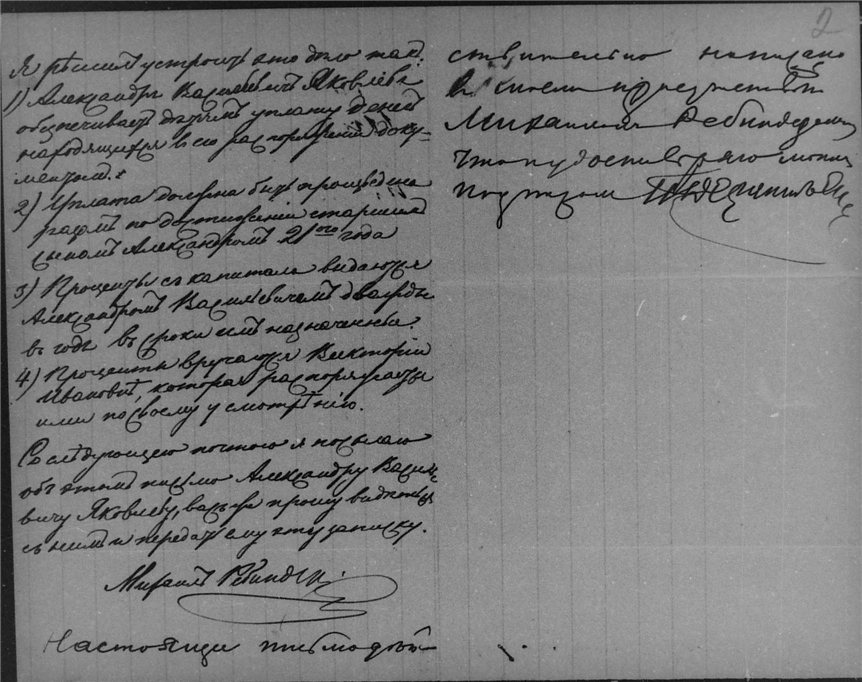 2
Я рѣшилъ устроить это дѣло такъ:
1) Александръ Васильевичъ Яковлевъ
обезпечиваетъ дѣтямъ уплату денегъ
находящимся въ его распоряженіи доку-
ментомъ.
2) Уплата должна быть произведена
по достиженіи старшимъ
сыномъ Александромъ 21ого года
3) Проценты съ капитала выдаются
Александромъ Васильевичемъ дважды
въ годъ въ сроки имъ назначенные.
4) Проценты вручаются Викторіи
Ивановнѣ, которая распоряжается
ими по своему усмотрѣнію.
Со слѣдующею почтою я посылаю
объ этомъ письмо Александру Василь
вичу Яковлеву, васъ же прошу видѣться
съ нимъ и передать ему эту записку.
Михаилъ Ребиндеръ.
Настоящи письмо дѣй
ствительно написано
Михаиломъ Ребиндеромъ
что и удостовѣряю моимъ